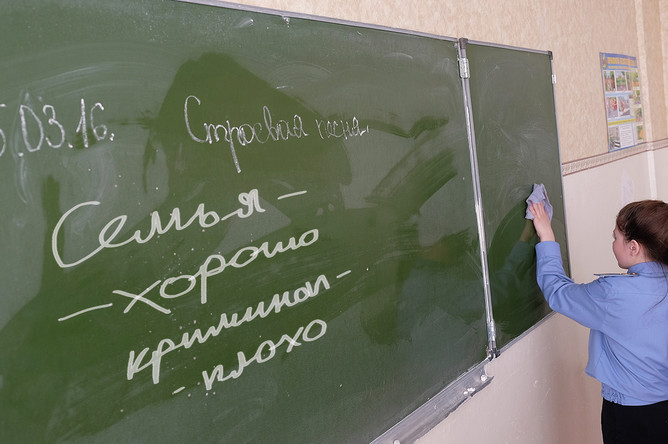 .03.16. Строевая песня.
Семья –
– хорошо
криминал –
– плохо